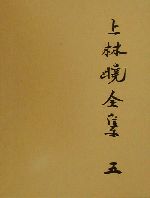 上林曉全集 五